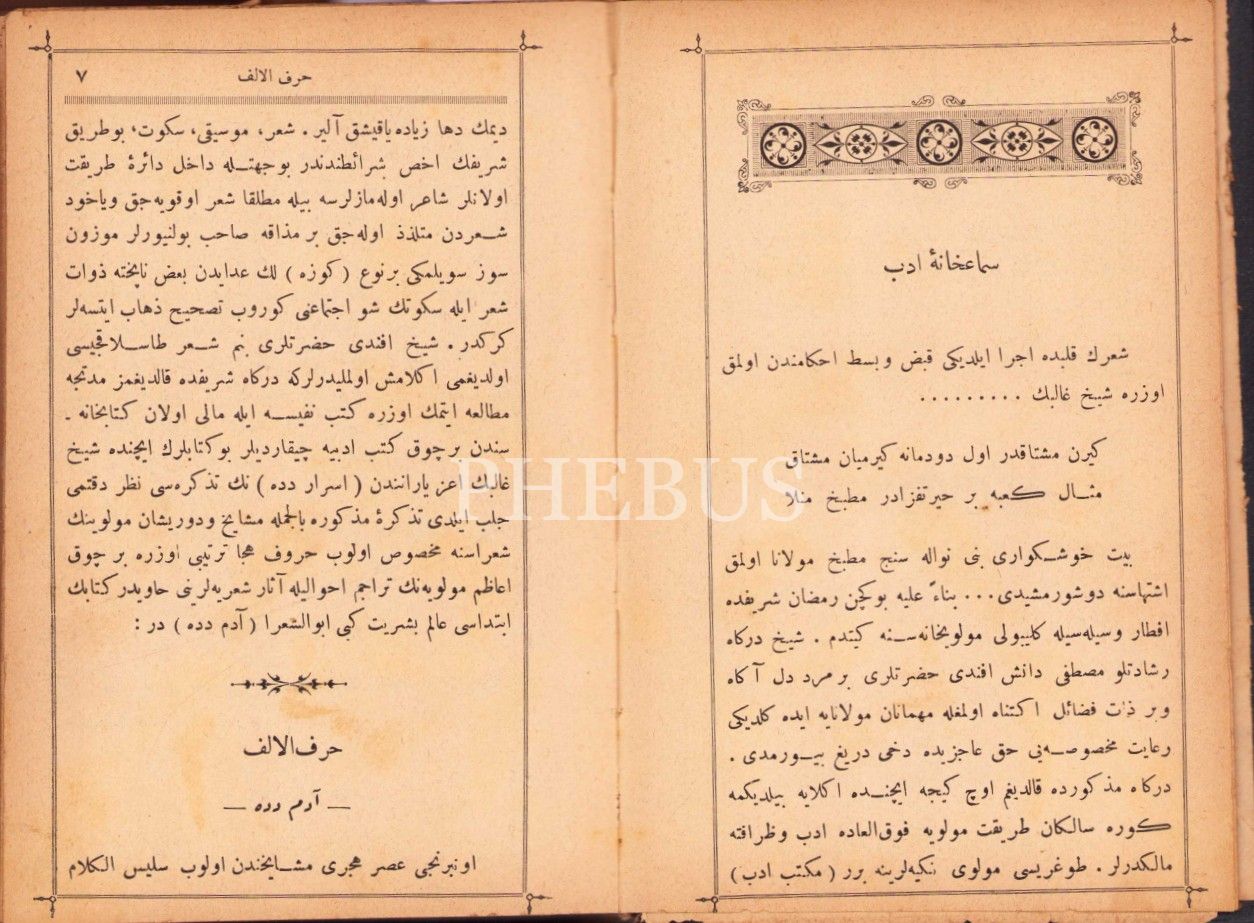 سماعخانهٔ ادب
شعرك قلبده اجرا ایلدیکی قبض و بسط احکامندن اولمق
اوزره شیخ غالبك . . . . . . . . .
کیرن مشتاقدر اول دودمانه کیرمیان مشتاق
مثال کعبه بر حیرتفزادر مطبخ منلا
بیت خوشکواری بنی نواله سنج مطبخ مولانا اولمق
اشتهاسنه دوشورمشیدی... بناءً علیه بوکچن رمضان شریفده
افطار وسیله‌سیله کلیبولی مولویخانه‌سنه کیتدم . شیخ درکاه
رشادتلو مصطفی دانش افندی حضرتلری بر مرد دل آکاه
و بر ذات فضائل اکتناه اولمغله مهمانان مولانایه ایده کلدیکی
رعایت مخصوصه‌یی حق عاجزیده دخی دریغ بیورمدی .
درکاه مذکورده قالدیغم اوچ کیجه ایچنده اکلایه بیلدیکمه
کوره سالکان طریقت مولویه فوق‌العاده ادب وظرافته
مالکدرلر . طوغریسی مولوی تکیه‌لرینه برر ( مکتب ادب )
حرف الالف
٧
دیمك دها زیاده یاقیشق آلیر . شعر، موسیقی، سکوت، بوطریق
شریفك اخص شرائطندندر بوجهتله داخل دائرهٔ طریقت
اولانلر شاعر اوله‌مازلرسه بیله مطلقا شعر اوقویه‌جق ویاخود
شعردن متلذذ اوله‌جق بر مذاقه صاحب بولنیورلر موزون
سوز سویلمکی برنوع ( کوزه ) لك عدایدن بعض ناپخته ذوات
شعر ایله سکوتك شو اجتماعنی کوروب تصحیح ذهاب ایتسه‌لر
کرکدر . شیخ افندی حضرتلری بنم شعر طاسلاقجیسی
اولدیغمی اکلامش اولملیدرلرکه درکاه شریفده قالدیغمز مدتجه
مطالعه ایتمك اوزره کتب نفیسه ایله مالی اولان کتابخانه ـ
سندن برچوق کتب ادبیه چیقاردیلر بوکتابلرك ایچنده شیخ
غالبك اعز یارانندن ( اسرار دده ) نك تذکره‌سی نظر دقتمی
جلب ایلدی تذکرهٔ مذکوره بالجمله مشایخ ودوریشان مولوینك
شعراسنه مخصوص اولوب حروف هجا ترتیبی اوزره بر چوق
اعاظم مولویه‌نك تراجم احوالیله آثار شعریه‌لرینی حاویدر کتابك
ابتداسی عالم بشریت کبی ابوالشعرا ( آدم دده ) در :
حرف الالف
— آدم دده —
اونبرنجی عصر هجری مشایخندن اولوب سلیس الکلام
PHEBUS